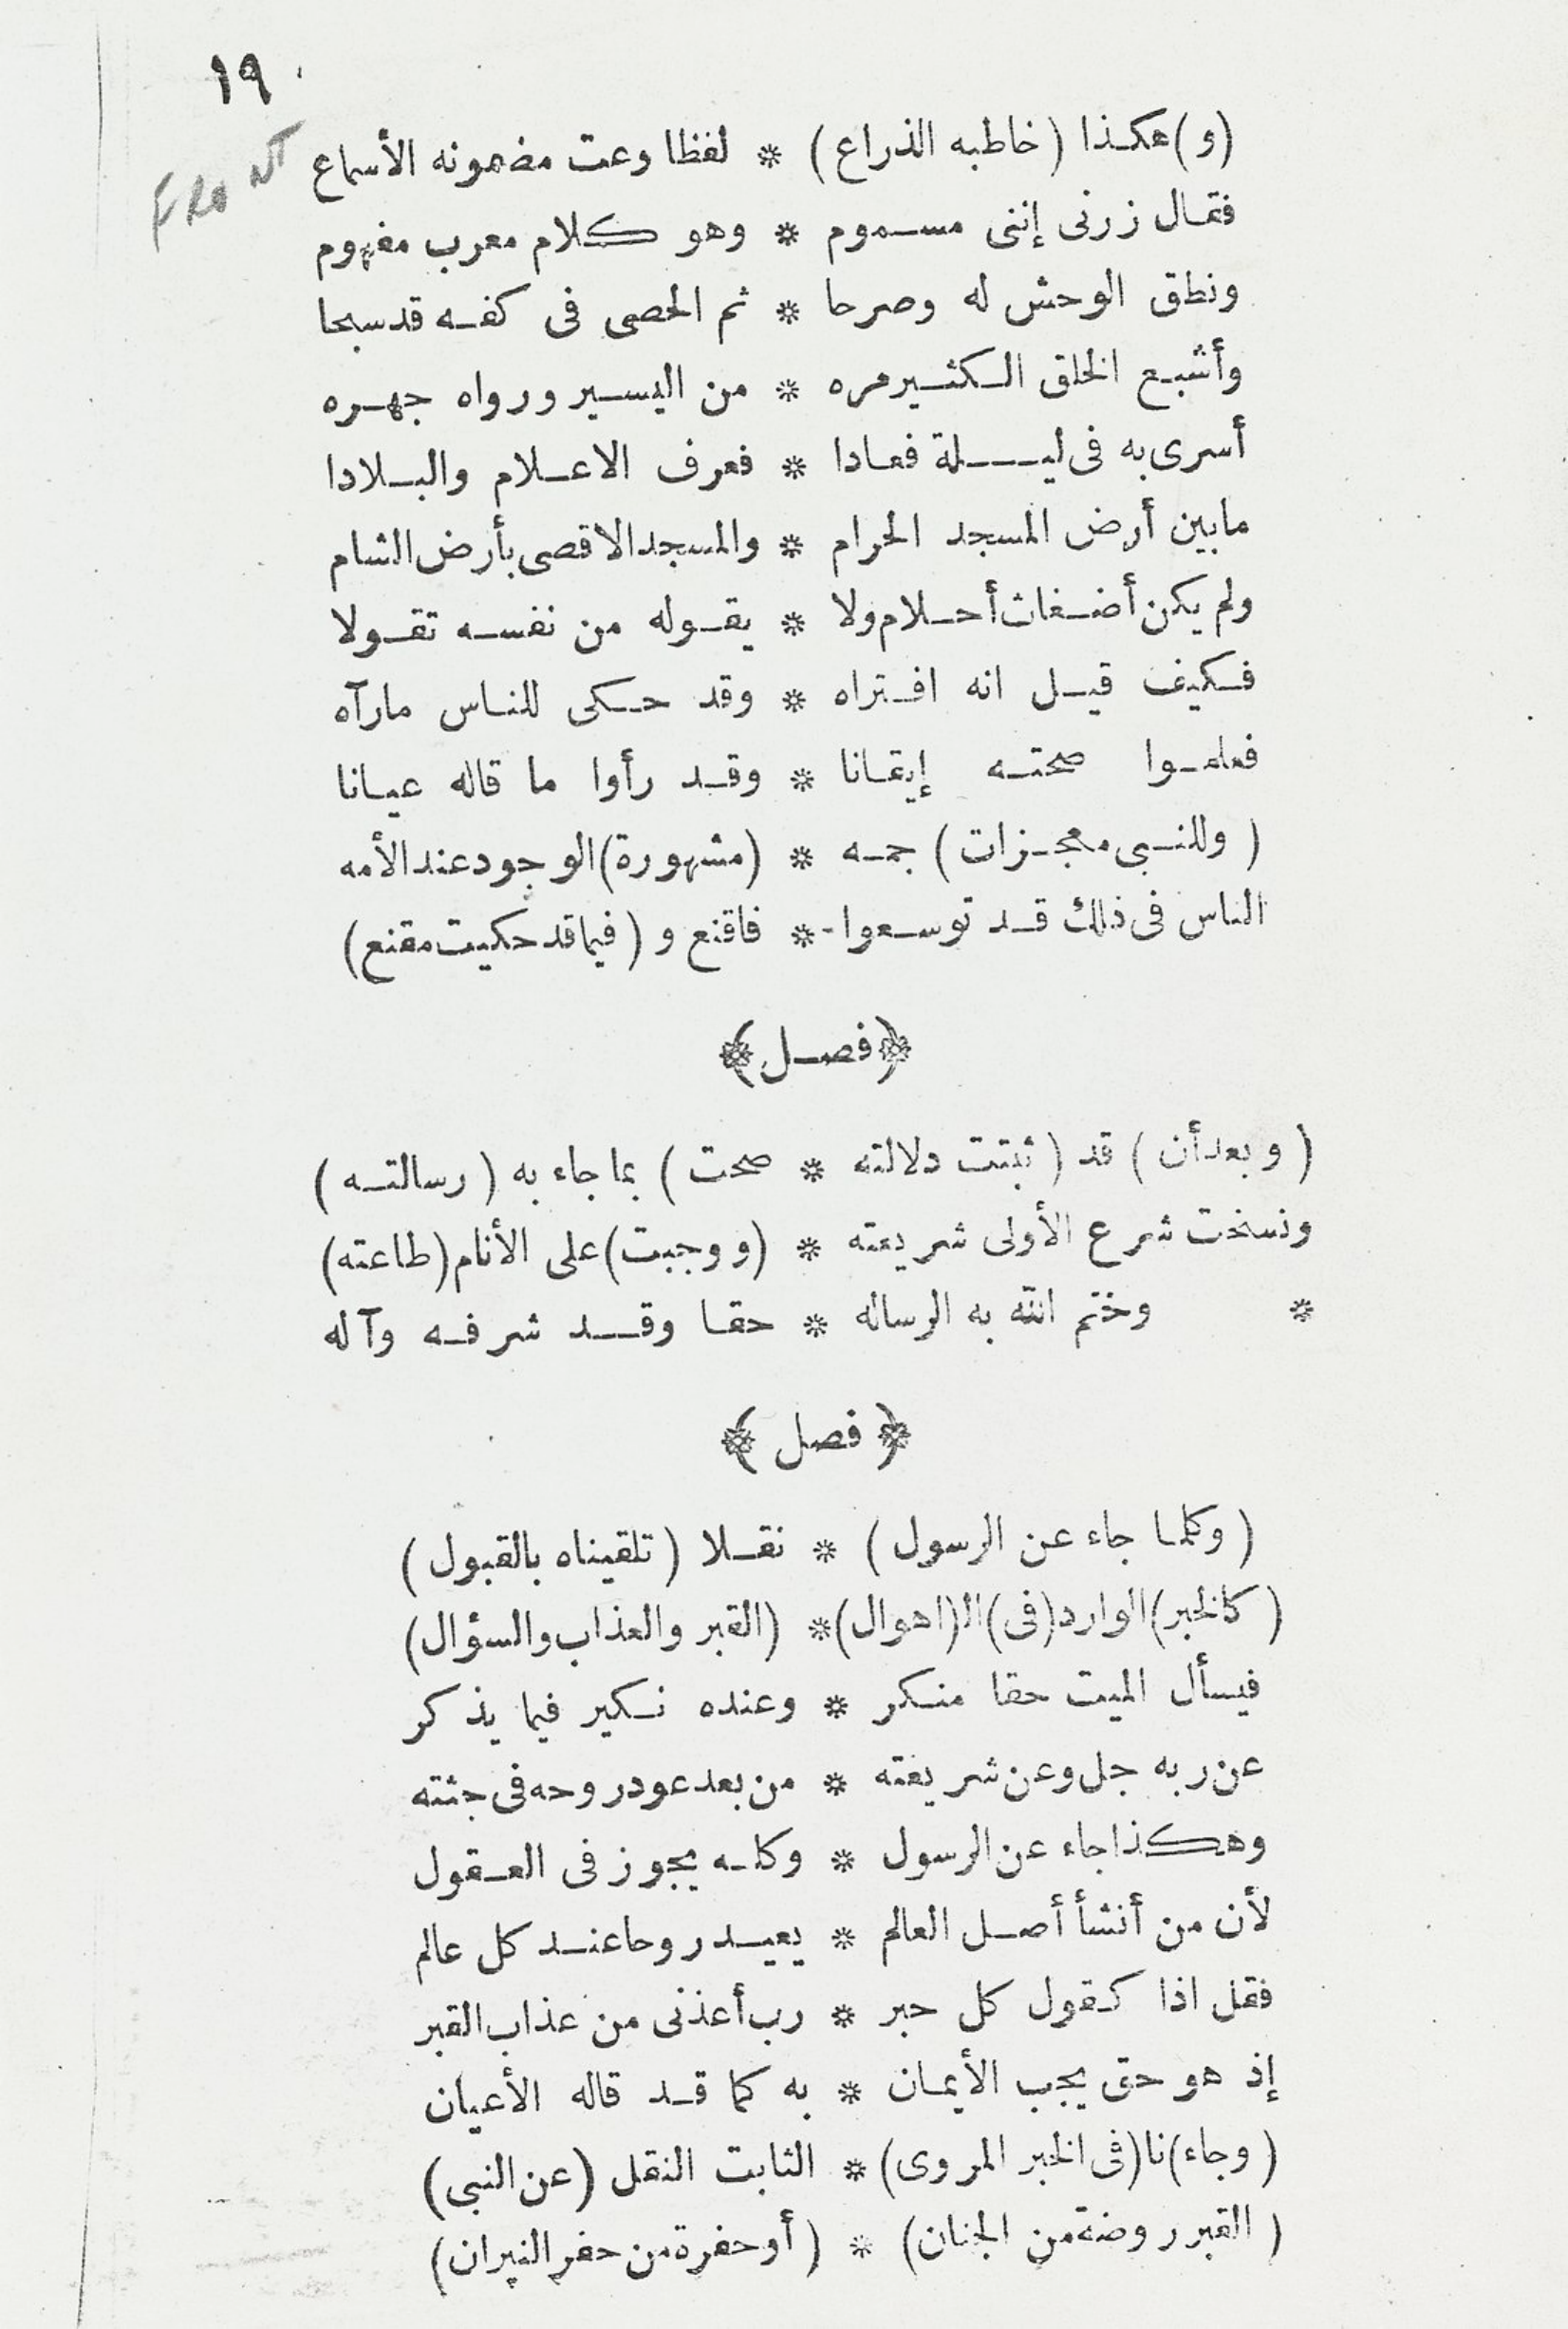 ١٩
FRONT
(و)هكذا (خاطبه الذراع) * لفظا وعت مضمونه الأسماع
فقال زرنى إننى مسموم * وهو كلام معرب مفهوم
ونطق الوحش له وصرحا * ثم الحصى فى كفه قد سبحا
وأشبع الخلق الكثير مره * من اليسير ورواه جهره
أسرى به فى ليلة فعادا * فعرف الاعلام والبلادا
مابين أرض المسجد الحرام * والمسجد الاقصى بأرض الشام
ولم يكن أضغاث أحلام ولا * يقوله من نفسه تقولا
فكيف قيل انه افتراه * وقد حكى للناس مارآه
فعلموا صحته إيقانا * وقد رأوا ما قاله عيانا
(وللنبى معجزات) جمه * (مشهورة) الوجود عند الأمه
الناس فى ذلك قد توسعوا * فاقنع و (فيما قد حكيت مقنع)
﴿فصل﴾
(وبعد أن) قد (ثبتت دلالته * صحت) بما جاء به (رسالته)
ونسخت شرع الأولى شريعته * (ووجبت) على الأنام (طاعته)
* وختم الله به الرساله * حقا وقد شرفه وآله
﴿فصل﴾
(وكلما جاء عن الرسول) * نقلا (تلقيناه بالقبول)
(كالخبر) الوارد (فى) ال(اهوال) * (القبر والعذاب والسؤال)
فيسأل الميت حقا منكر * وعنده نكير فيما يذكر
عن ربه جل وعن شريعته * من بعد عود روحه فى جثته
وهكذا جاء عن الرسول * وكله يجوز فى العقول
لأن من أنشأ أصل العالم * يعيد روحا عند كل عالم
فقل اذا كقول كل حبر * رب أعذنى من عذاب القبر
إذ هو حق يجب الأيمان * به كما قد قاله الأعيان
(وجاء)نا (فى الخبر المروى) * الثابت النقل (عن النبى)
(القبر روضة من الجنان) * (أو حفرة من حفر النيران)